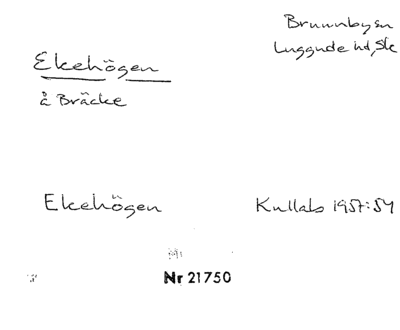 Brunnby sn
Luggude hd, Sk
Ekehögen
å Bräcke
Ekehögen
Kullab 1957:54
Nr 21750